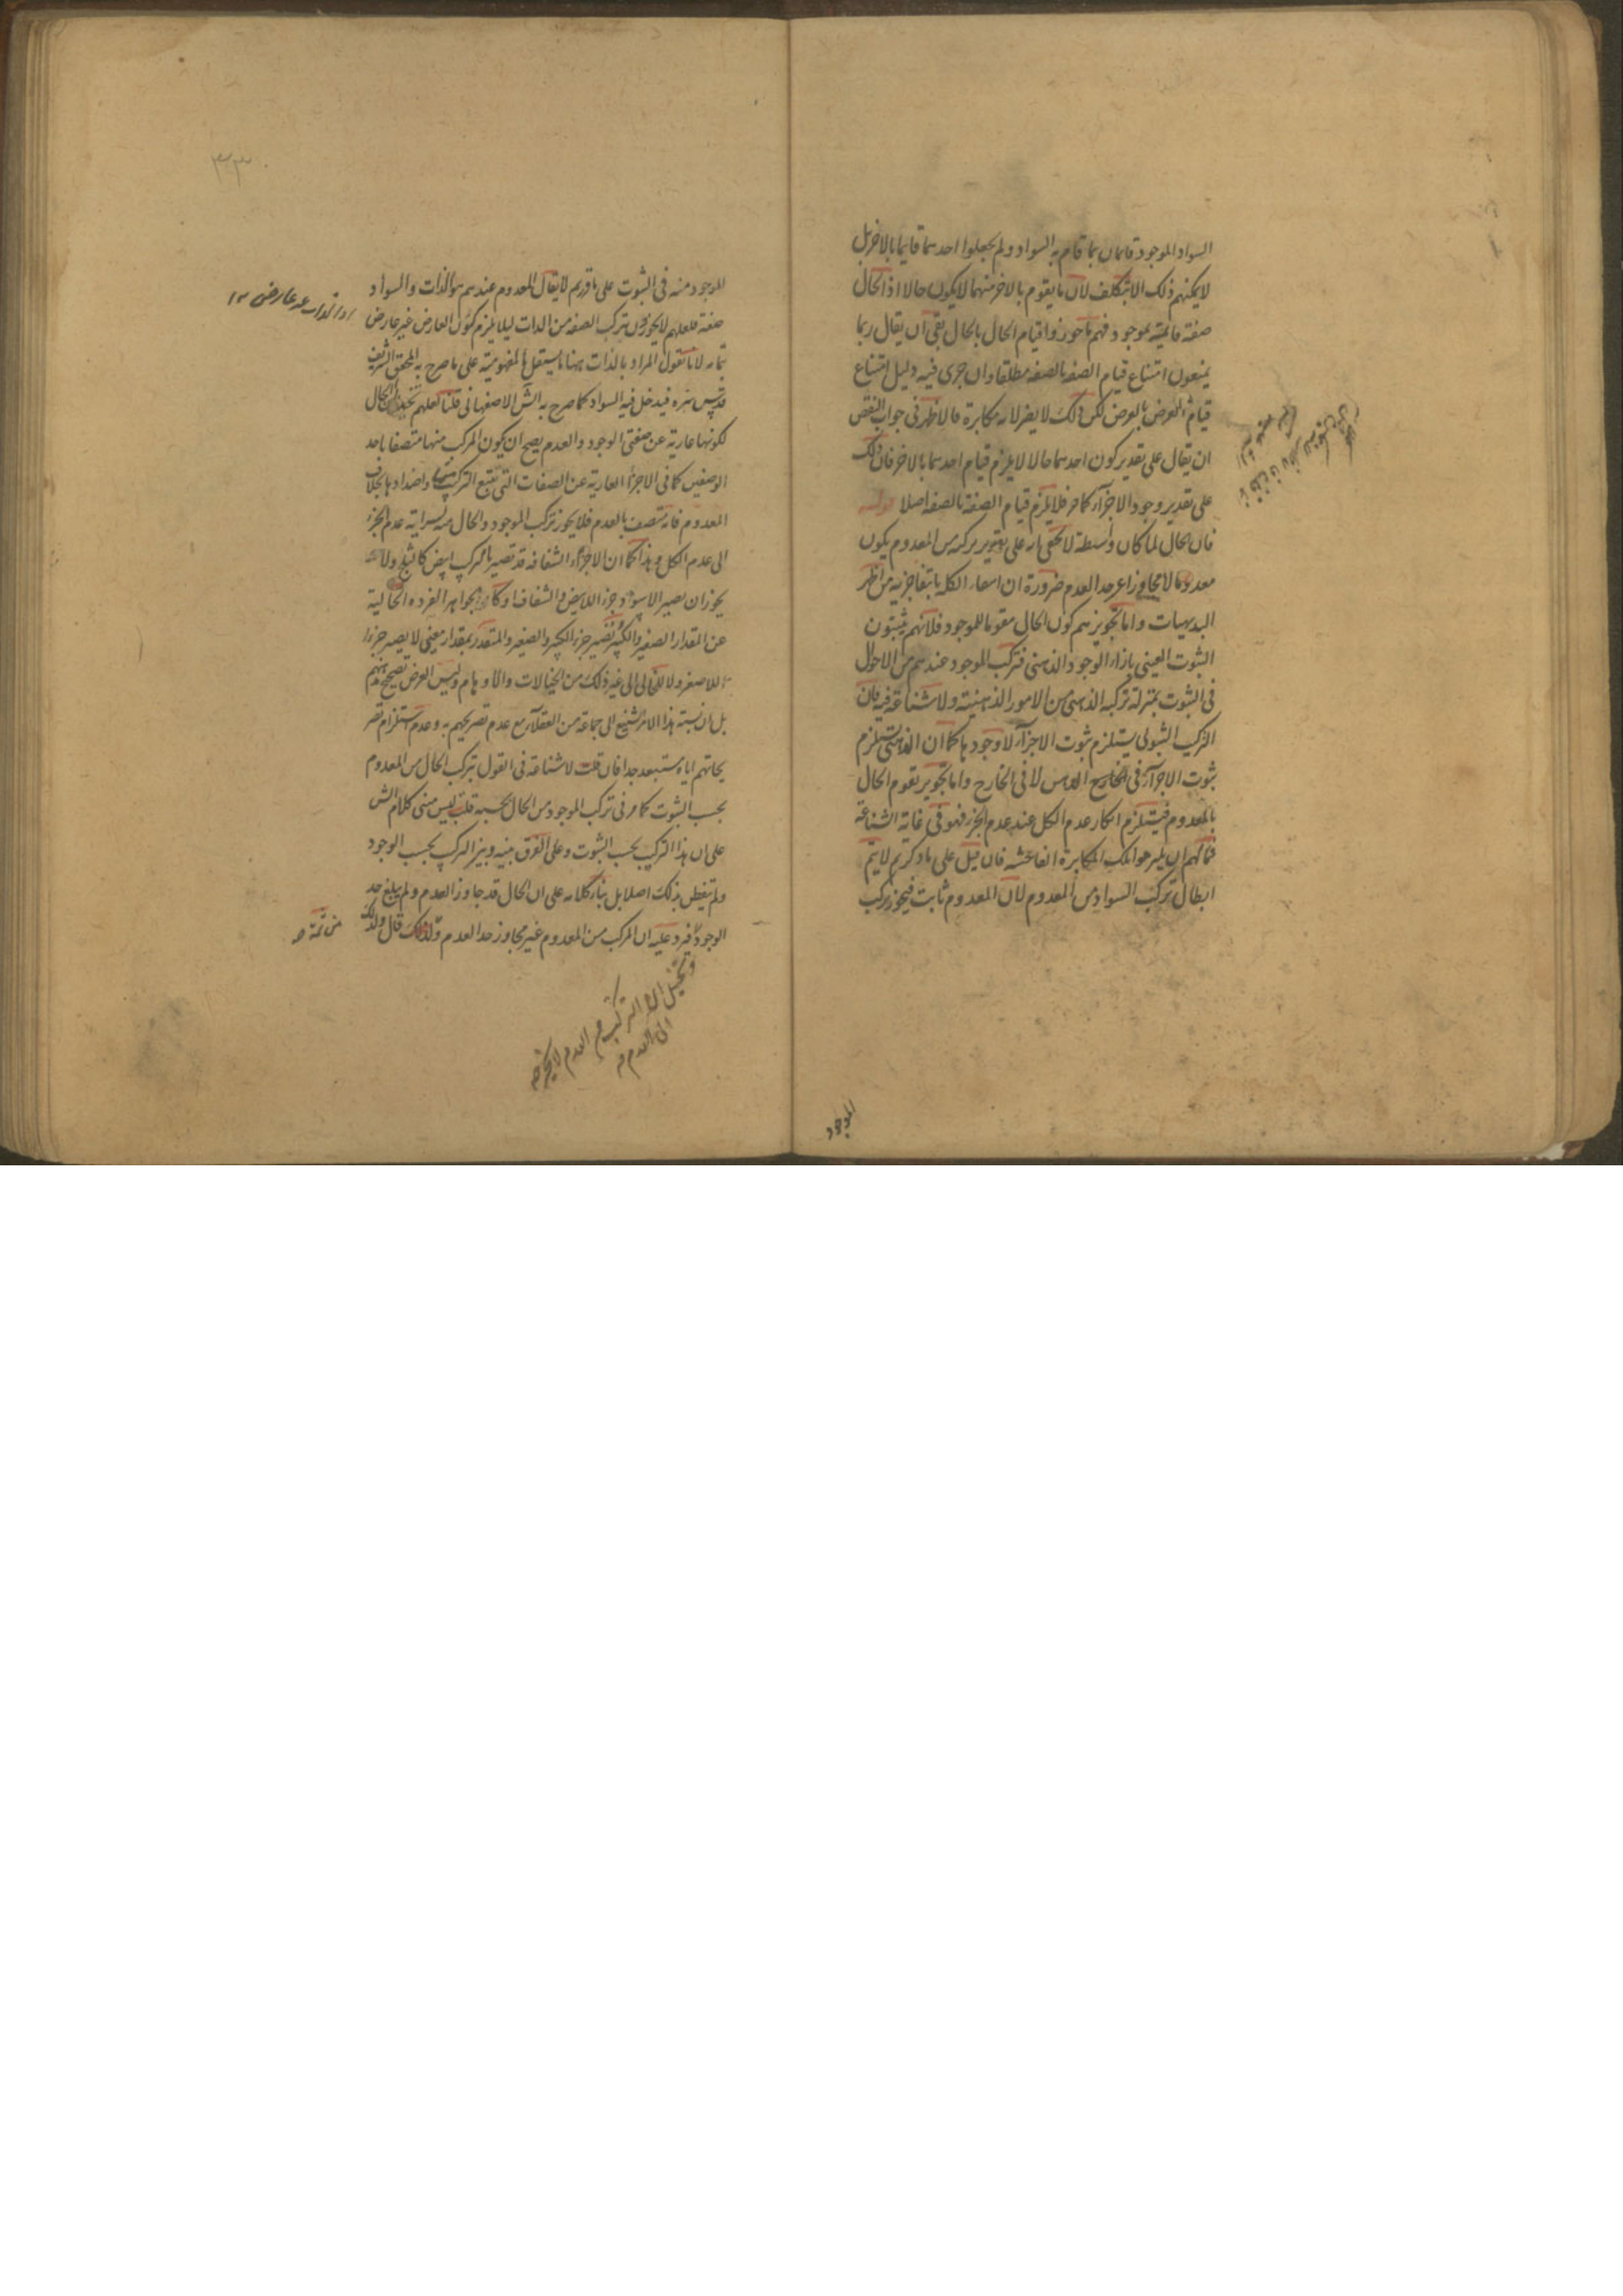 السواد الموجود قايمان بما قام به السواد ولم يجعلوا احدهما قايما بالاخر بل
لا يمكنهم ذلك الا بتكلف لان ما يقوم بالاخر منهما لا يكون حالا اذ الحال
صفة قايمة بموجود فهم ما جوزوا قيام الحال بالحال بقى ان يقال ربما
يمنعون امتناع قيام الصفة بالصفة مطلقا وان جرى فيه دليل امتناع
قيام العرض بالعرض لكن ذلك لا يضر لانه مكابرة فالاظهر فى جواب النقض
ان يقال على تقدير كون احدهما حالا لا يلزم قيام احدهما بالاخر فان ذلك
على تقدير وجود الاجزاء كما مر فلا يلزم قيام الصفة بالصفة اصلا قوله
فان الحال لما كان واسطة لا يخفى انه على تقدير تركبه من المعدوم يكون
معدوما لا مجاوزا عن حد العدم ضرورة ان انتفاء الكل بانتفاء جزئه من اظهر
البديهيات واما تجويزهم كون الحال مقوما للموجود فلانهم يثبتون
الثبوت العينى بازاء الوجود الذهنى فتركب الموجود عندهم من الاحوال
فى الثبوت بمنزلة تركبه الذهنى من الامور الذهنية ولا شناعة فيه فان
التركيب الثبوتى يستلزم ثبوت الاجزاء لا وجودها كما ان الذهنى يستلزم
ثبوت الاجزاء فى الذهن لا فى الخارج واما تجويز تقوم الحال
بالمعدوم فيستلزم انكار عدم الكل عند عدم الجزء فهو فى غاية الشناعة
فما لهم ان يلتزموا تلك المكابرة الفاحشة فان قيل على ما ذكرتم لا يتم
ابطال تركب السواد من المعدوم لان المعدوم ثابت فيجوز تركب
الموجود
الموجود منه فى الثبوت على ما قررتم لا يقال المعدوم عندهم هو الذات والسواد
صفة فلعلهم لا يجوزون تركب الصفة من الذات ليلا يلزم كون العارض غير عارض
بتمامه لانا نقول المراد بالذات ههنا ما يستقل بالمفهومية على ما صرح به المحقق الشريف
قدس سره فيدخل فيه السواد كما صرح به الش الاصفهانى قلنا لعلهم تخيلوا ان الحال
لكونها عارية عن صفتى الوجود والعدم يصح ان يكون المركب منها متصفا باحد
الوصفين كما فى الاجزاء العارية عن الصفات التى تتبع التركيب واضدادها بخلاف
المعدوم فانه متصف بالعدم فلا يجوز تركب الموجود والحال منه لسراية عدم الجزء
الى عدم الكل وهذا كما ان الاجزاء الشفافة قد تصير بالتركيب ابيض كالثلج ولا
يجوز ان يصير الاسود جزء الابيض والشفاف او كما ان الجواهر الفردة الخالية
عن المقدار الصغير والكبير تصير جزء الكبير والصغير والمتقدر بمقدار معين لا يصير جزءا
للاصغر ولا للخالى الى غير ذلك من الخيالات والاوهام وليس الغرض تصحيح مذهبهم
بل ان نسبة هذا الامر الشنيع الى جماعة من العقلاء مع عدم تصريحهم به وعدم استلزام تصر
يحاتهم اياه مستبعد جدا فان قلت لا شناعة فى القول بتركب الحال من المعدوم
بحسب الثبوت كما مر فى تركب الموجود من الحال بحسبه قلت ليس مبنى كلام الش
على ان هذا التركيب بحسب الثبوت وعلى الفرق بينه وبين التركيب بحسب الوجود
ولم يتفطن بذلك اصلا بل بناء كلامه على ان الحال قد جاوز العدم ولم يبلغ حد
الوجود فيرد عليه ان المركب من المعدوم غير مجاوز حد العدم ولذلك قال